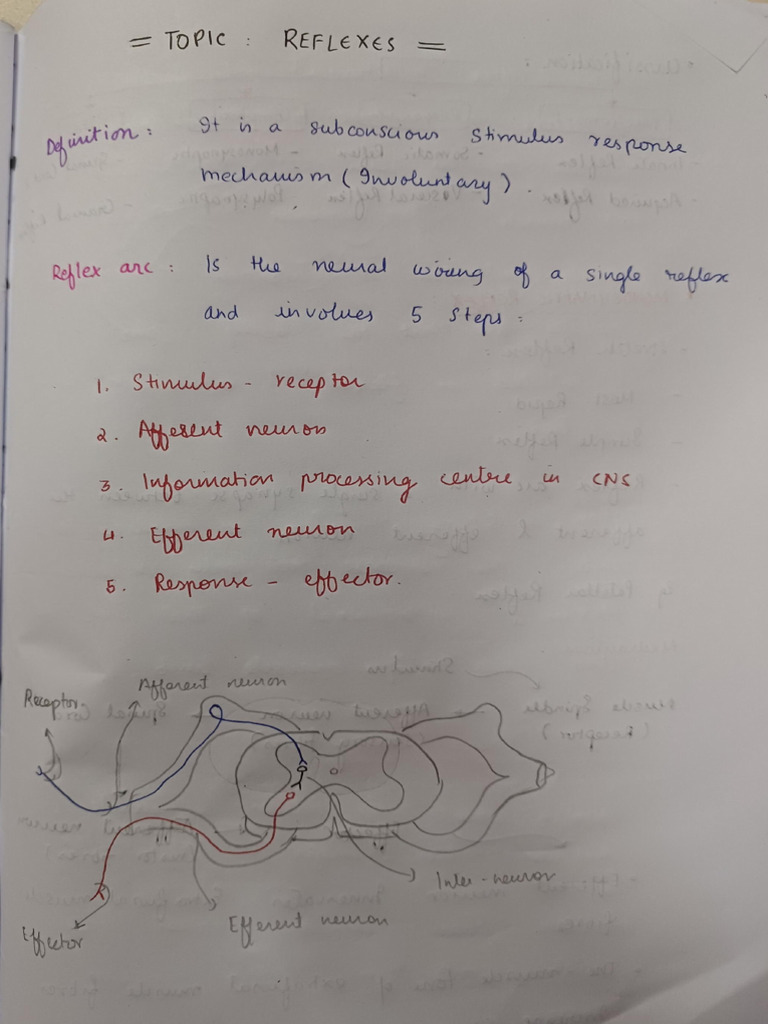 = TOPIC : REFLEXES =
Definition : It is a subconscious stimulus response
mechanism (Involuntary).
Reflex arc : Is the neural wiring of a single reflex
and involves 5 steps :
1. Stimulus - receptor
2. Afferent neuron
3. Information processing centre in CNS
4. Efferent neuron
5. Response - effector.
Afferent neuron
Receptor
Inter-neuron
Efferent neuron
Effector